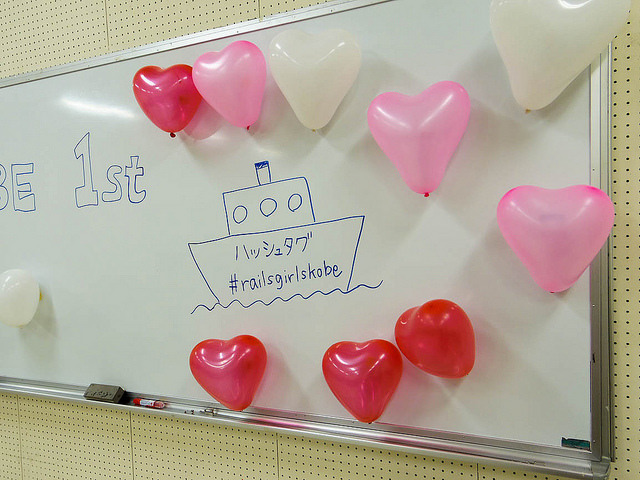 BE 1st
ハッシュタグ
#railsgirlskobe